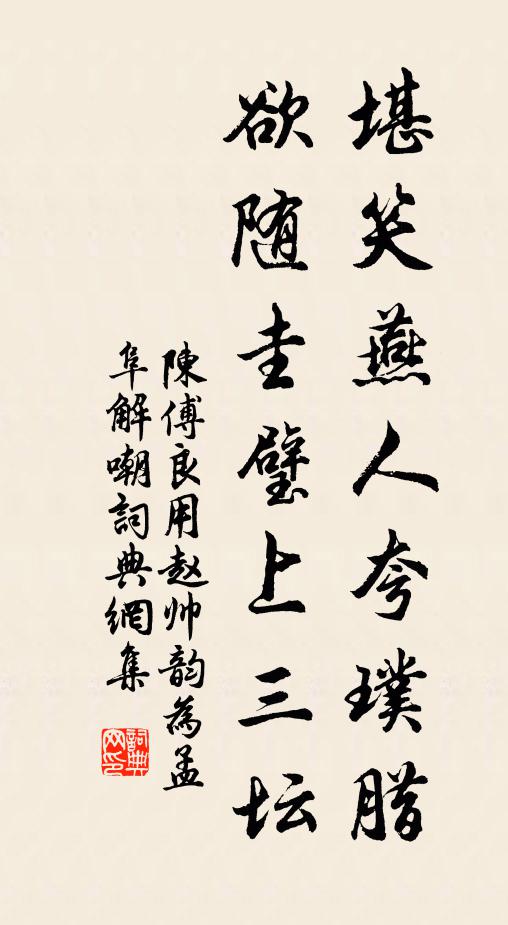 堪笑燕人夸璞腊
欲随圭璧上三坛
陳傅良用赵帅韵為孟
阜解嘲詞典網集
詞典网印